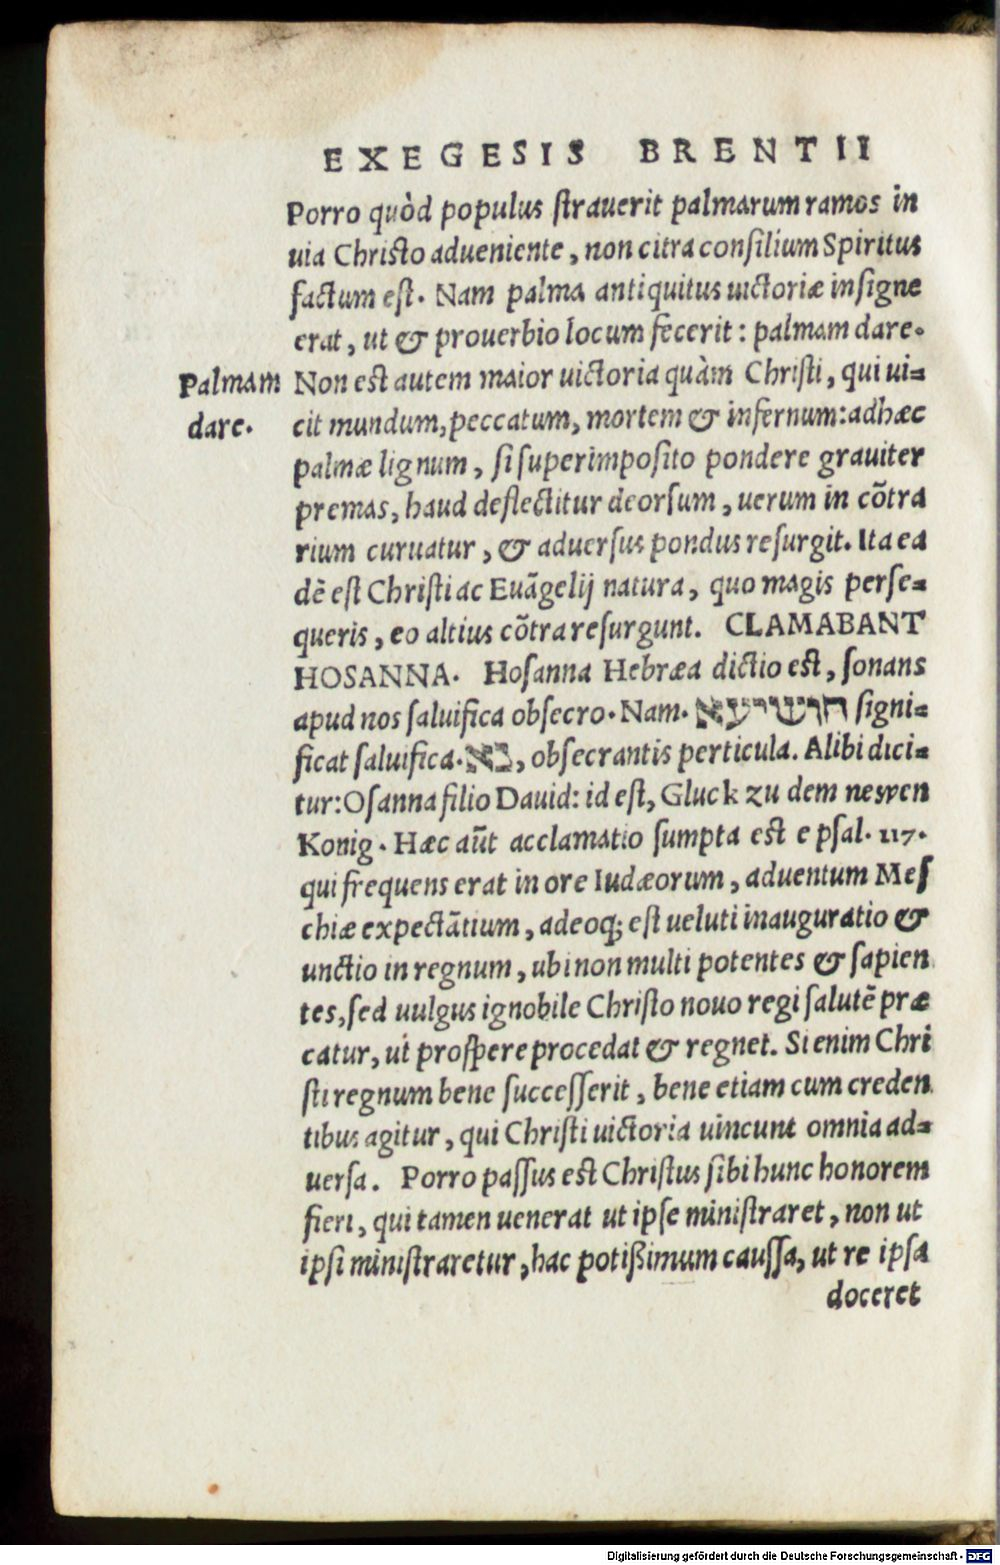 EXEGESIS BRENTII
Porro quòd populus ſtrauerit palmarum ramos in
uia Chriſto adueniente, non citra conſilium Spiritus
factum eſt. Nam palma antiquitus uictoriæ inſigne
erat, ut & prouerbio locum fecerit: palmam dare.
Palmam
dare.
Non eſt autem maior uictoria quàm Chriſti, qui ui=
cit mundum, peccatum, mortem & infernum: adhæc
palmæ lignum, ſi ſuperimpoſito pondere grauiter
premas, haud deflectitur deorſum, uerum in cõtra
rium curuatur, & aduerſus pondus reſurgit. Ita ea
dẽ eſt Chriſti ac Euãgelij natura, quo magis perſe=
queris, eo altius cõtra reſurgunt. CLAMABANT
HOSANNA. Hoſanna Hebræa dictio eſt, ſonans
apud nos ſaluifica obſecro. Nam. הושיעא ſigni=
ficat ſaluifica. נא, obſecrantis perticula. Alibi dici=
tur: Oſanna filio Dauid: id eſt, Gluck zu dem newen
Konig. Hæc aũt acclamatio ſumpta eſt e pſal. 117.
qui frequens erat in ore Iudæorum, aduentum Meſ
chiæ expectãtium, adeoq; eſt ueluti inauguratio &
unctio in regnum, ubi non multi potentes & ſapien
tes, ſed uulgus ignobile Chriſto nouo regi ſalutẽ præ
catur, ut proſpere procedat & regnet. Si enim Chri
ſti regnum bene ſucceſſerit, bene etiam cum creden
tibus agitur, qui Chriſti uictoria uincunt omnia ad=
uerſa. Porro paſſus eſt Chriſtus ſibi hunc honorem
fieri, qui tamen uenerat ut ipſe miniſtraret, non ut
ipſi miniſtraretur, hac potißimum cauſſa, ut re ipſa
doceret
Digitalisierung gefördert durch die Deutsche Forschungsgemeinschaft - DFG